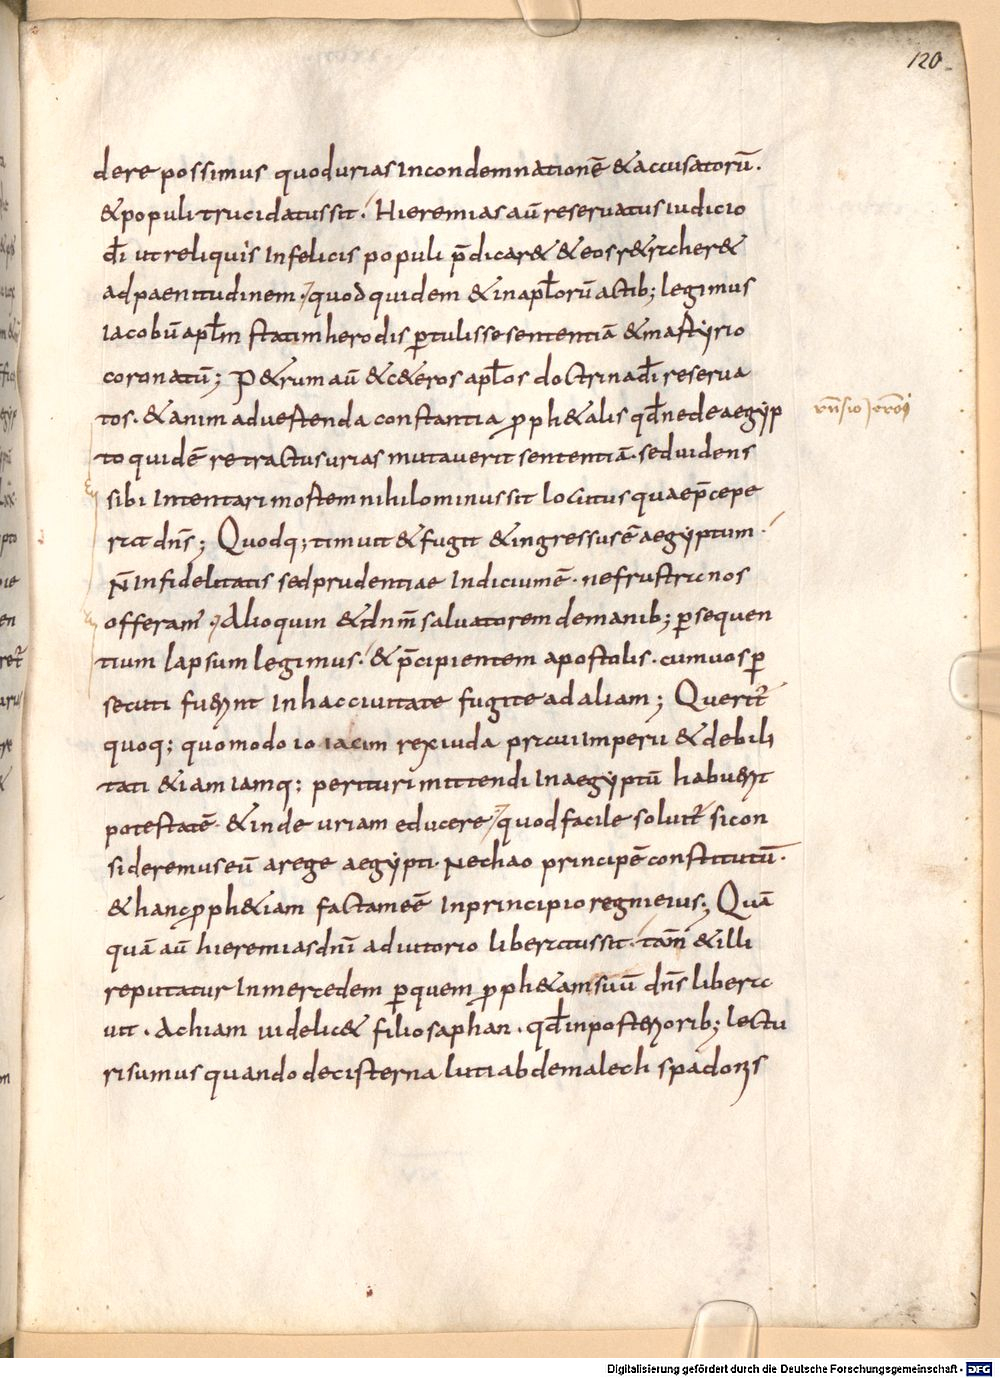 120
dere possimus quod urias In condemnationē & accusatorū.
& populi trucidatus sit. Hieremias aū reservatus iudicio
dī ut reliquis Infelicis populi p̄dicar& & eos r&rather&
ad paenitudinem. quod quidem & in apl̄orū actib; legimus
iacobū apl̄m statim herodis ꝑtulisse sententiā & martyrio
coronatū; P&rum aū & c&eros apl̄os doctrinae dī reserva
tos. & animadvertenda constantia ꝓph&alis qd̄ ne de aegyp
to quidē retractus urias mutaverit sententiā. sed videns
sibi Intentari mortem nihilominus sit locutus quae p̄cepe
rat dn̄s; Quodq; timuit & fugit & ingressus ē aegyptum.
N̄ Infidelitatis sed prudentiae Indicium ē. ne frustra nos
offeram̄. Alioquin & dn̄m salvatorem de manib; ꝑsequen
tium lapsum legimus. & p̄cipientem apostolis. cum vos ꝑ
secuti fuerint In hac civitate fugite ad aliam; Querit᷑
quoq; quomodo ioiacim rex iuda parvi Imperii & debili
tati & iam iamq; perituri mittendi In aegyptū habuerit
potestatē. & inde uriam educere, quod facile solvit᷑ si con
sideremus eū a rege aegypti. Nechao principē constitutū.
& hanc ꝓph&iam factam eē In principio regni eius; Quā
quā aū hieremias dn̄i adiutorio liberatus sit. tam̄ & illi
reputatur In mercedem ꝑ quem ꝓph&am suū dn̄s libera
vit. Achiam videlic& filio saphan. qd̄ in posterioribus; lectu
ri sumus quando de cisterna luti abdemalech spadonis